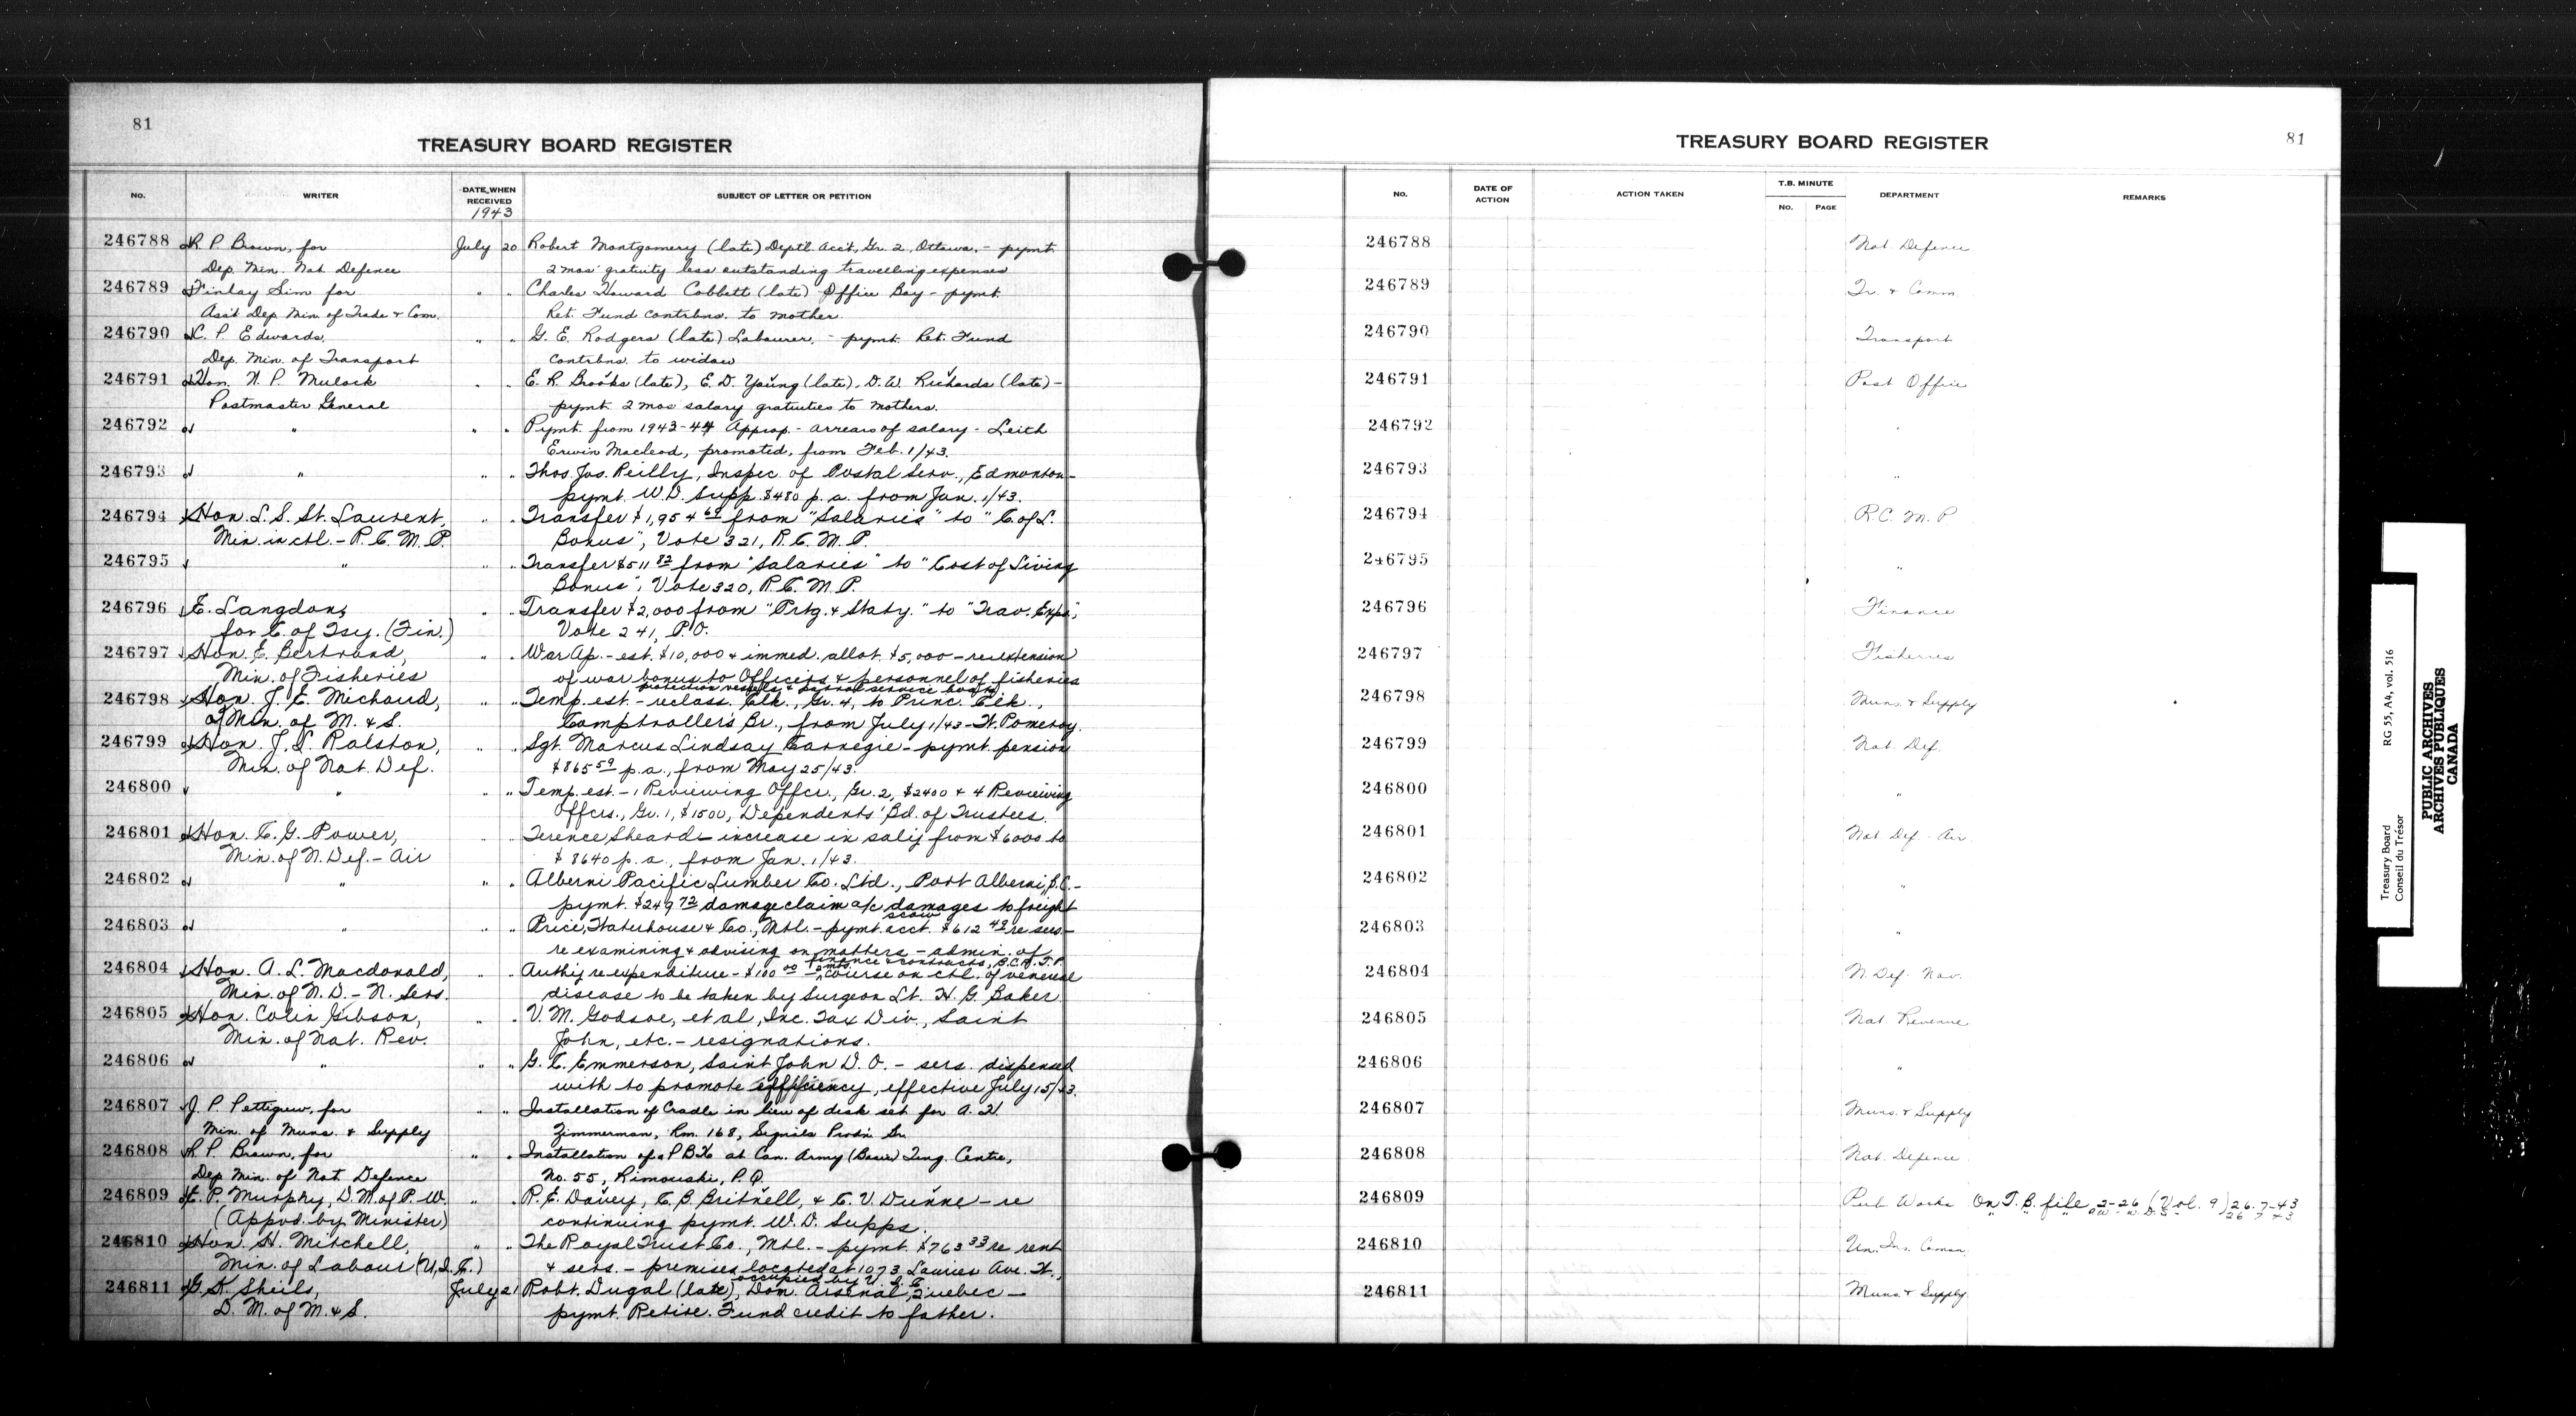 81
TREASURY BOARD REGISTER
No. WRITER DATE WHEN RECEIVED SUBJECT OF LETTER OR PETITION
1943
246788 R P Brown, for July 20 Robert Montgomery (late) Dept'l Acc't, Gr. 2, Ottawa, - pymt.
Dep. Min. Nat Defence 2 mos' gratuity less outstanding travelling expenses
246789 Finlay Sim for " " Charles Howard Cobbett (late) Office Boy - pymt.
Ass't Dep Min. of Trade & Com. Ret. Fund contrbns. to mother.
246790 C. P. Edwards, " " G. E. Rodgers (late) Labourer, - pymt. Ret. Fund
Dep. Min. of Transport contrbns. to widow
246791 Hon. W. P. Mulock " " E. R. Brooks (late), E. D. Young (late), D. W. Richards (late) -
Postmaster General pymt. 2 mos salary gratuities to mothers.
246792 " " " Pymt. from 1943-44 Approp. - arrears of salary - Leith
Erwin Macleod, promoted, from Feb. 1/43.
246793 " " " Thos. Jos. Reilly, Inspec. of Postal Serv., Edmonton -
pymt. W.D. Supp. $480 p.a. from Jan. 1/43.
246794 Hon. L. S. St. Laurent, " " Transfer $1,954 69 from "Salaries" to "C. of L.
Min. in ctl. - R. C. M. P. Bonus", Vote 321, R. C. M. P.
246795 " " " Transfer $511 82 from "Salaries" to "Cost of Living
Bonus", Vote 320, R. C. M. P.
246796 E. Langdon, " " Transfer $2,000 from "Prtg. & Staty." to "Trav. Exps.",
for C. of Tsy. (Fin.) Vote 241, P.O.
246797 Hon. E. Bertrand, " " War Ap. - est. $10,000 & immed. allot. $5,000 - re extension
Min. of Fisheries of war bonus to Officers & personnel of fisheries
protection vessels & patrol service boats
246798 Hon. J. E. Michaud, " " Temp. est. - reclass. Clk., Gr. 4, to Princ. Clk.,
a/Min. of M. & S. Comptroller's Br., from July 1/43 - W. Pomeroy.
246799 Hon. J. L. Ralston, " " Sgt. Marcus Lindsay Carnegie - pymt. pension
Min. of Nat. Def. $865 59 p.a., from May 25/43.
246800 " " " Temp. est. - 1 Reviewing Offcr., Gr. 2, $2400 & 4 Reviewing
Offcrs., Gr. 1, $1500, Dependents' Bd. of Trustees.
246801 Hon. C. G. Power, " " Terence Sheard - increase in sal'y from $6000 to
Min. of N. Def. - Air $8640 p.a., from Jan. 1/43.
246802 " " " Alberni Pacific Lumber Co. Ltd., Port Alberni, B.C. -
pymt. $249 72 damage claim a/c damages to freight
scow
246803 " " " Price, Waterhouse & Co., Mtl. - pymt. acct. $612 49 re sers. -
re examining & advising on matters - admin. of
finance & contracts, B.C.A.T.P.
246804 Hon. A. L. Macdonald, " " Auth'y re expenditure - $100 00 2 mths. course on ctl. of venereal
Min. of N. D. - N. Sers. disease to be taken by Surgeon Lt. H. G. Baker
246805 Hon. Colin Gibson, " " V. M. Godsoe, et al, Inc. Tax Div., Saint
Min. of Nat. Rev. John, etc. - resignations.
246806 " " " G. C. Emmerson, Saint John D. O. - sers. dispensed
with to promote efficiency, effective July 15/43.
246807 J. P. Pettigrew, for " " Installation of Cradle in lieu of disk set for A. H.
Min. of Muns. & Supply Zimmerman, Rm. 168, Signals Prod'n Br.
246808 R P. Brown, for " " Installation of a P B X at Can. Army (Basic) Tng. Centre,
Dep Min. of Nat Defence No. 55, Rimouski, P.Q.
246809 E. P. Murphy, D. M. of P. W. " " R. E. Davey, C. B. Britnell, & C. V. Dunne - re
(Appvd. by Minister) continuing pymt. W. D. Supps.
246810 Hon. H. Mitchell, " " The Royal Trust Co., Mtl. - pymt. $763 33 re rent
Min. of Labour (U.I.C.) & sers. - premises located at 1073 Laurier Ave. W.,
occupied by U. I. C.
246811 G. K. Sheils, July 21 Robt. Dugal (late), Dom. Arsenal, Quebec -
D. M. of M. & S. pymt. Retire. Fund credit to father.
TREASURY BOARD REGISTER
81
No. DATE OF ACTION ACTION TAKEN T.B. MINUTE No. PAGE DEPARTMENT REMARKS
246788 Nat. Defence
246789 Tr. & Comm.
246790 Transport
246791 Post Office
246792 "
246793 "
246794 R.C. M. P.
246795 "
246796 Finance
246797 Fisheries
246798 Muns. & Supply
246799 Nat. Def.
246800 "
246801 Nat Def. - Air
246802 "
246803 "
246804 N. Def. Nav.
246805 Nat. Revenue
246806 "
246807 Muns. & Supply
246808 Nat. Defence
246809 Pub. Works On T. B. file 2-26 (Vol. 9) 26-7-43
246810 Un. Ins. Comm.
246811 Muns. & Supply
Treasury Board
Conseil du Trésor
RG 55, A4, vol. 516
PUBLIC ARCHIVES
ARCHIVES PUBLIQUES
CANADA